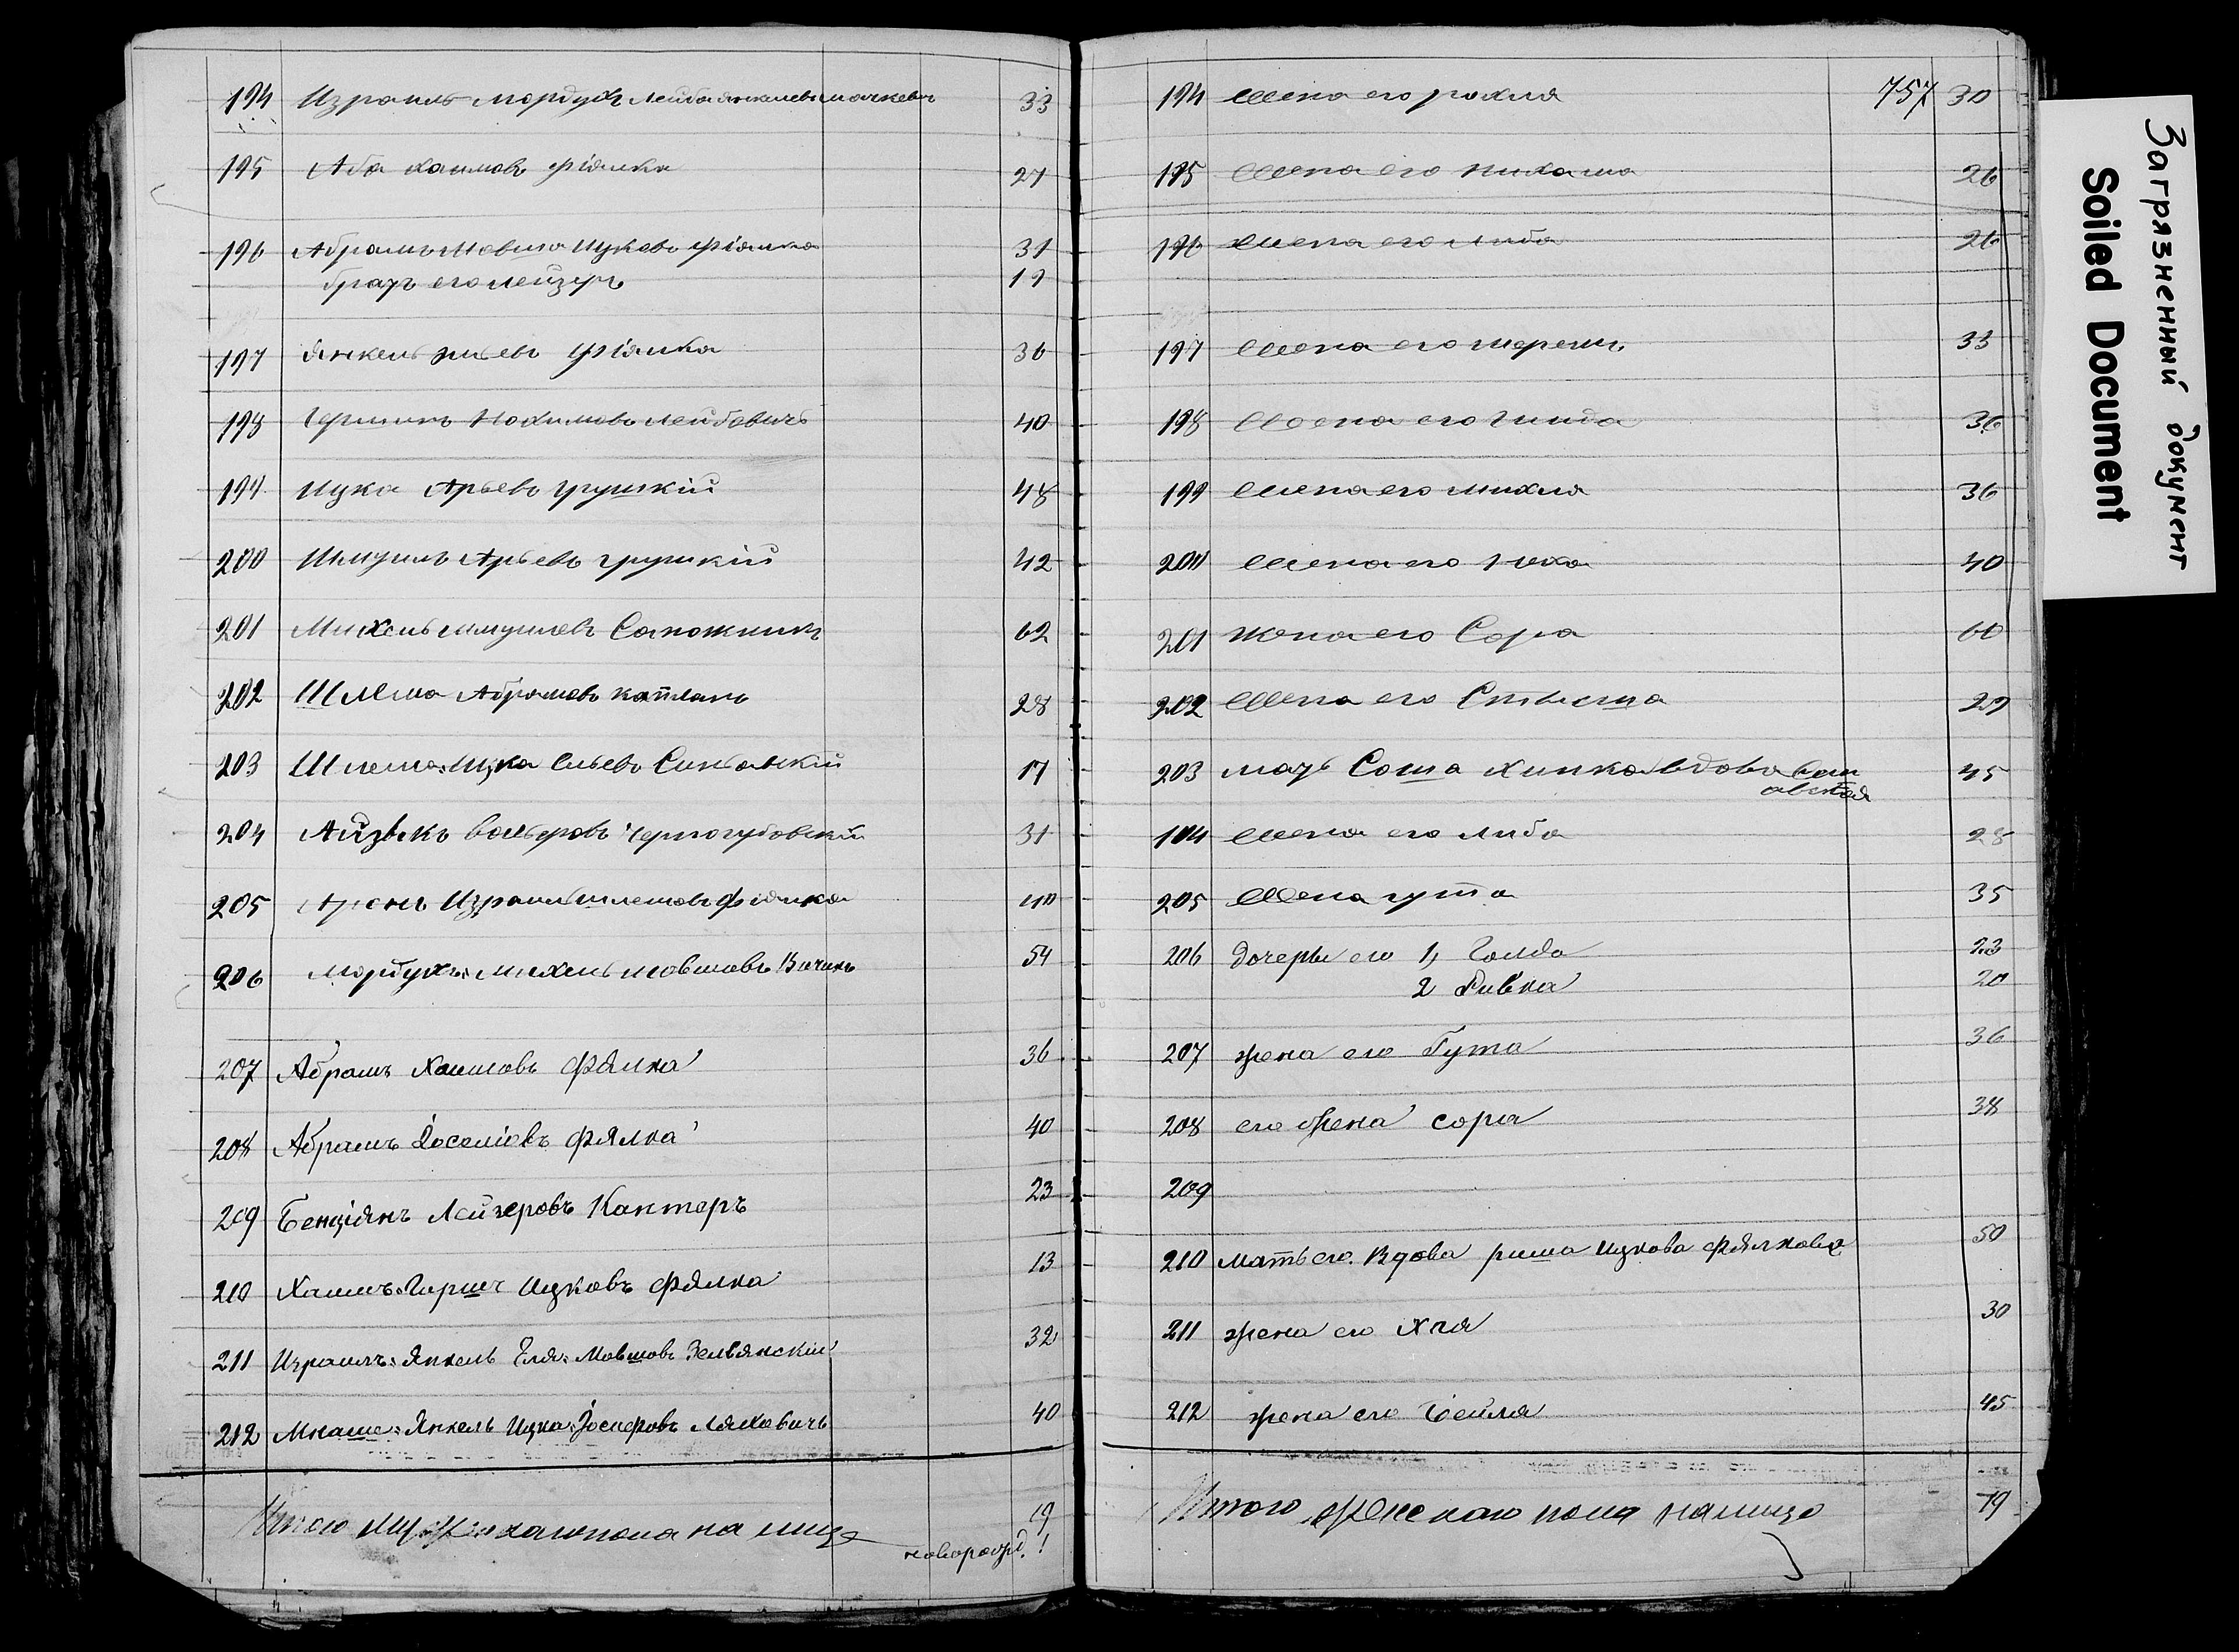 194 Израиль Мордухъ Лейба Янкелевъ Мачкевич 33
195 Аба Хаимовъ Фіялка 27
196 Абрамъ Мовша Ицковъ Фіялка 31
братъ его Лейзеръ 19
197 Янкель Эльевъ Фіялка 36
198 Гершинъ Нохимовъ Лейбовичъ 40
199 Ицка Арьевъ Грушкій 48
200 Шмуилъ Арьевъ Грушкій 42
201 Михель Шмуилевъ Сапожникъ 62
202 Шлёма Абрамовъ Капланъ 28
203 Шлема-Ицка Эльевъ 17
204 Айзыкъ Вольфовъ Черногубовскій 31
205 Аронъ Израиль Шлемовъ Фіялка 40
206 Мордухъ-Михель Мовшовъ 54
207 Абрамъ Хаимовъ Фялка 36
208 Абрамъ Іоселіовъ Фялка 40
209 Бенціянъ Лейзеровъ Кантеръ 23
210 Хаимъ-Гиршъ Ицковъ Фялка 13
211 Израилъ-Янкель Еля-Мовшовъ Зельвянскій 32
212 Янкель Ицка-Іосифовъ Ляховичъ 40
Итого мужескаго пола на лицо 19
новорожд. 1
757
194 Жена его Рохля 30
195 Жена его 26
196 жена его Либа 26
197 Жена его 33
198 Жена его Гинда 36
199 Жена его Михля 36
200 Жена его 40
201 Жена его Сора 60
202 Жена его 27
203 мать Соша Химка вдова 45
104 Жена его Либа 28
205 Жена Гута 35
206 дочеры его 1, Голда 23
2 Ривка 20
207 жена его Гута 36
208 его жена Сора 38
209
210 Мать его. Вдова Риша Ицкова Фялкова 50
211 жена его Хая 30
212 жена его Бейля 45
Итого женскаго пола налицо 19
Загрязненный документ
Soiled Document